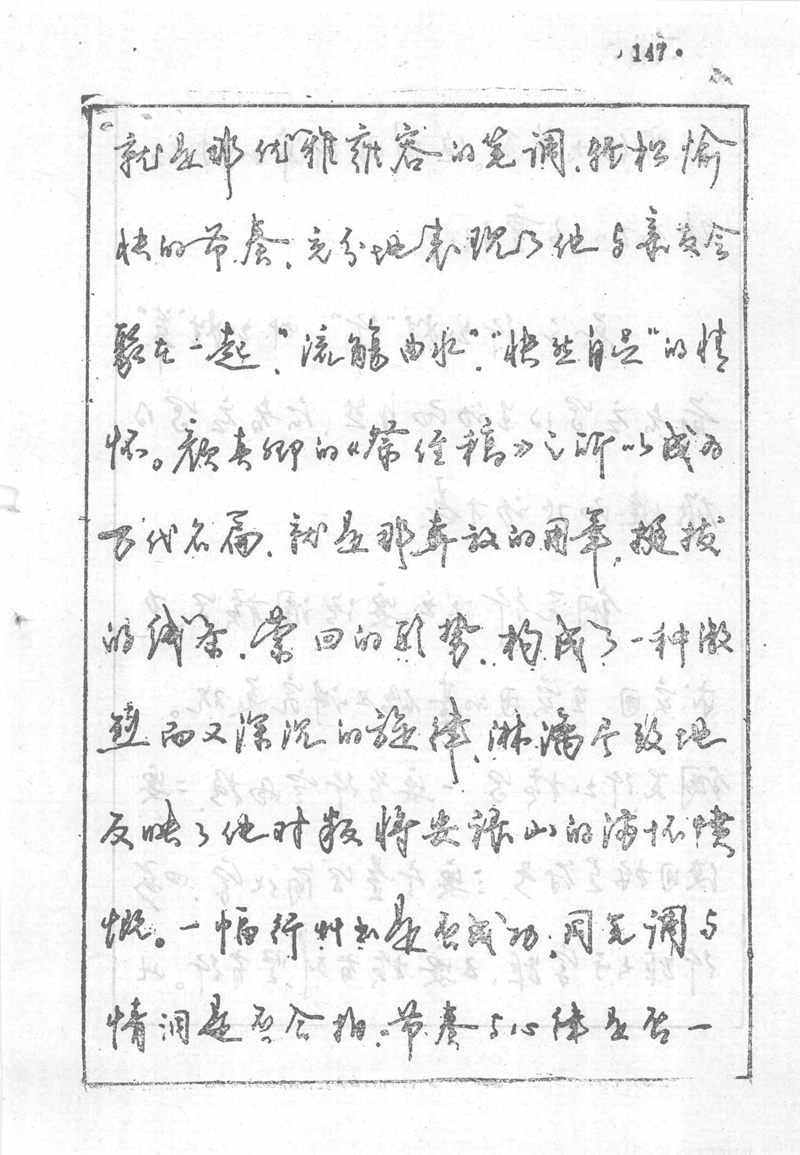 ·147·
就是那优雅雍容的笔调、轻松愉
快的节奏、充分地表现了他与亲友会
聚在一起,“流觞曲水”,“快然自足”的情
怀。颜真卿的《祭侄稿》之所以成为
万代名篇、就是那奔放的用笔,挺拔
的线条、萦回的形势、构成了一种激
越而又深沉的旋律,淋漓尽致地
反映了他对叛将安禄山的满怀愤
慨。一幅行草书是否成功,同笔调与
情调是否合拍、节奏与心律是否一